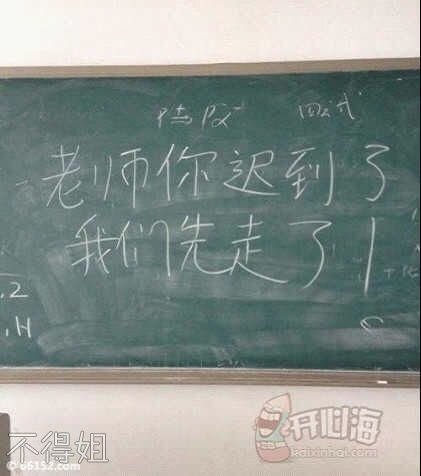 老师你迟到了
我们先走了
.2
.H
不得姐
© u6152.com
开心海
kaixinhai.com